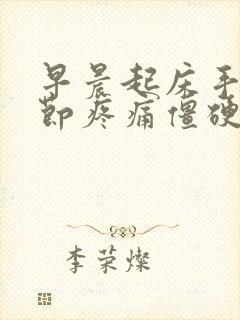 早晨起床手
节疼痛僵硬
李荣灿